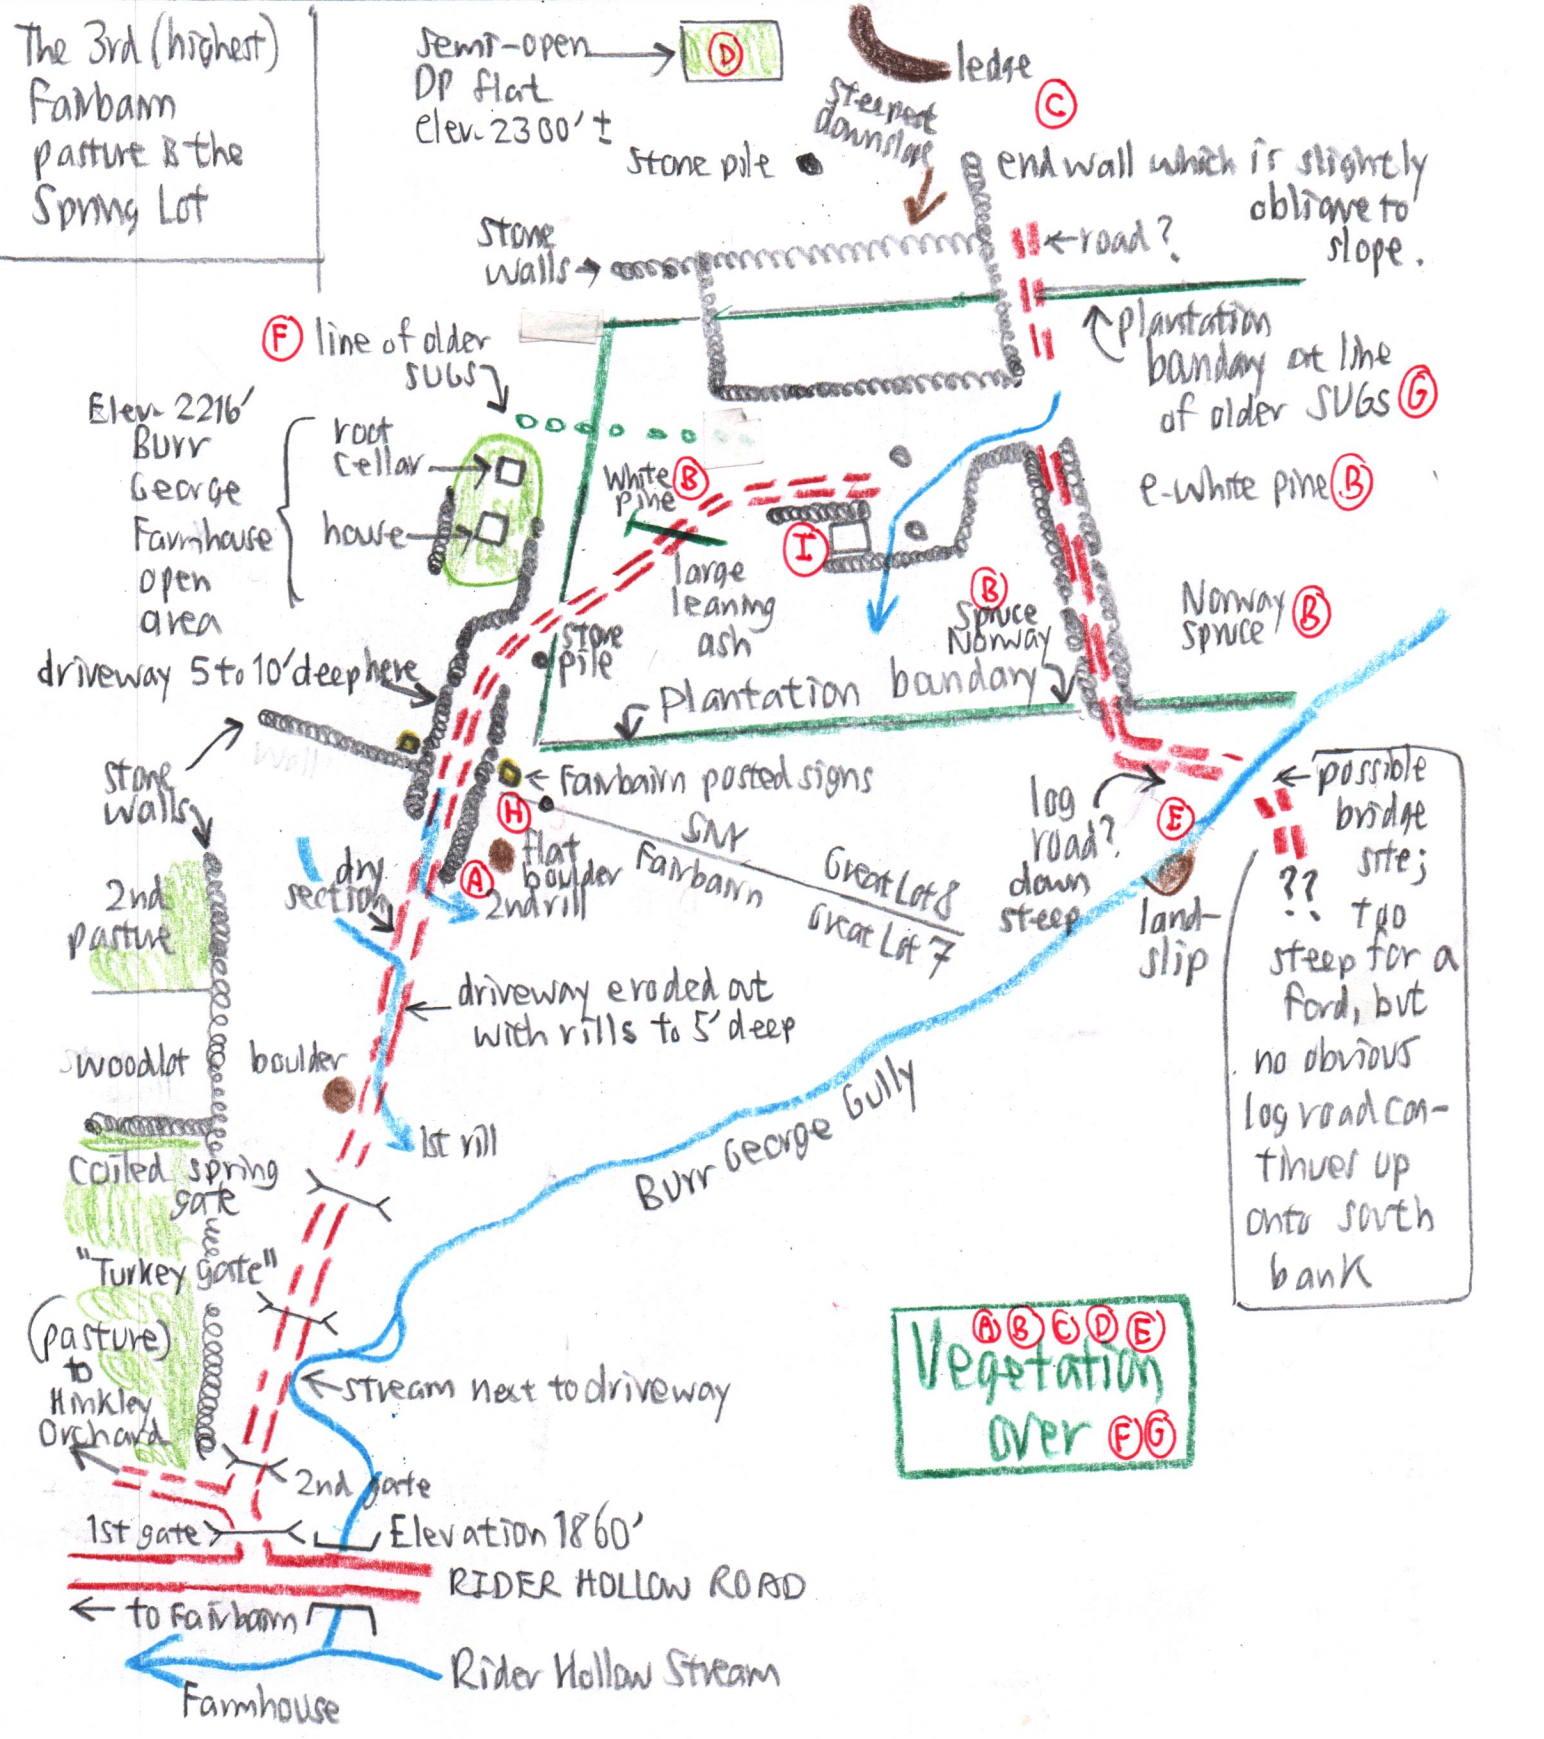 The 3rd (highest)
Fairbairn
pasture is the
Spring Lot
semi-open
DP flat
elev. 2300' ±
D
ledge
C
steepest
downslope
stone pile
end wall which is slightly
oblique to
slope.
stone
walls
road?
F line of older
SUGS
plantation
boundary at line
of older SUGs G
Elev. 2216'
Burr
George
Farmhouse
open
area
root
cellar
house
White B
pine
large
leaning
ash
I
e-white pine B
B
Spruce
Norway
Norway B
spruce
driveway 5 to 10' deep here
stone
pile
plantation boundary
wall
stone
walls
Fairbairn posted signs
H
SNY
Fairbairn
Great Lot 8
Great Lot 7
flat
boulder
A
2nd rill
dry
section
log
road?
down
steep
E
land-
slip
possible
bridge
site;
too
steep for a
ford, but
no obvious
log road con-
tinues up
onto south
bank
??
2nd
pasture
driveway eroded out
with rills to 5' deep
woodlot
boulder
1st rill
Burr George Gully
coiled spring
gate
"Turkey gate"
(pasture)
to
Hinkley
Orchard
stream next to driveway
A B C D E
Vegetation
over F G
2nd gate
1st gate
Elevation 1860'
RIDER HOLLOW ROAD
to Fairbairn
Farmhouse
Rider Hollow Stream